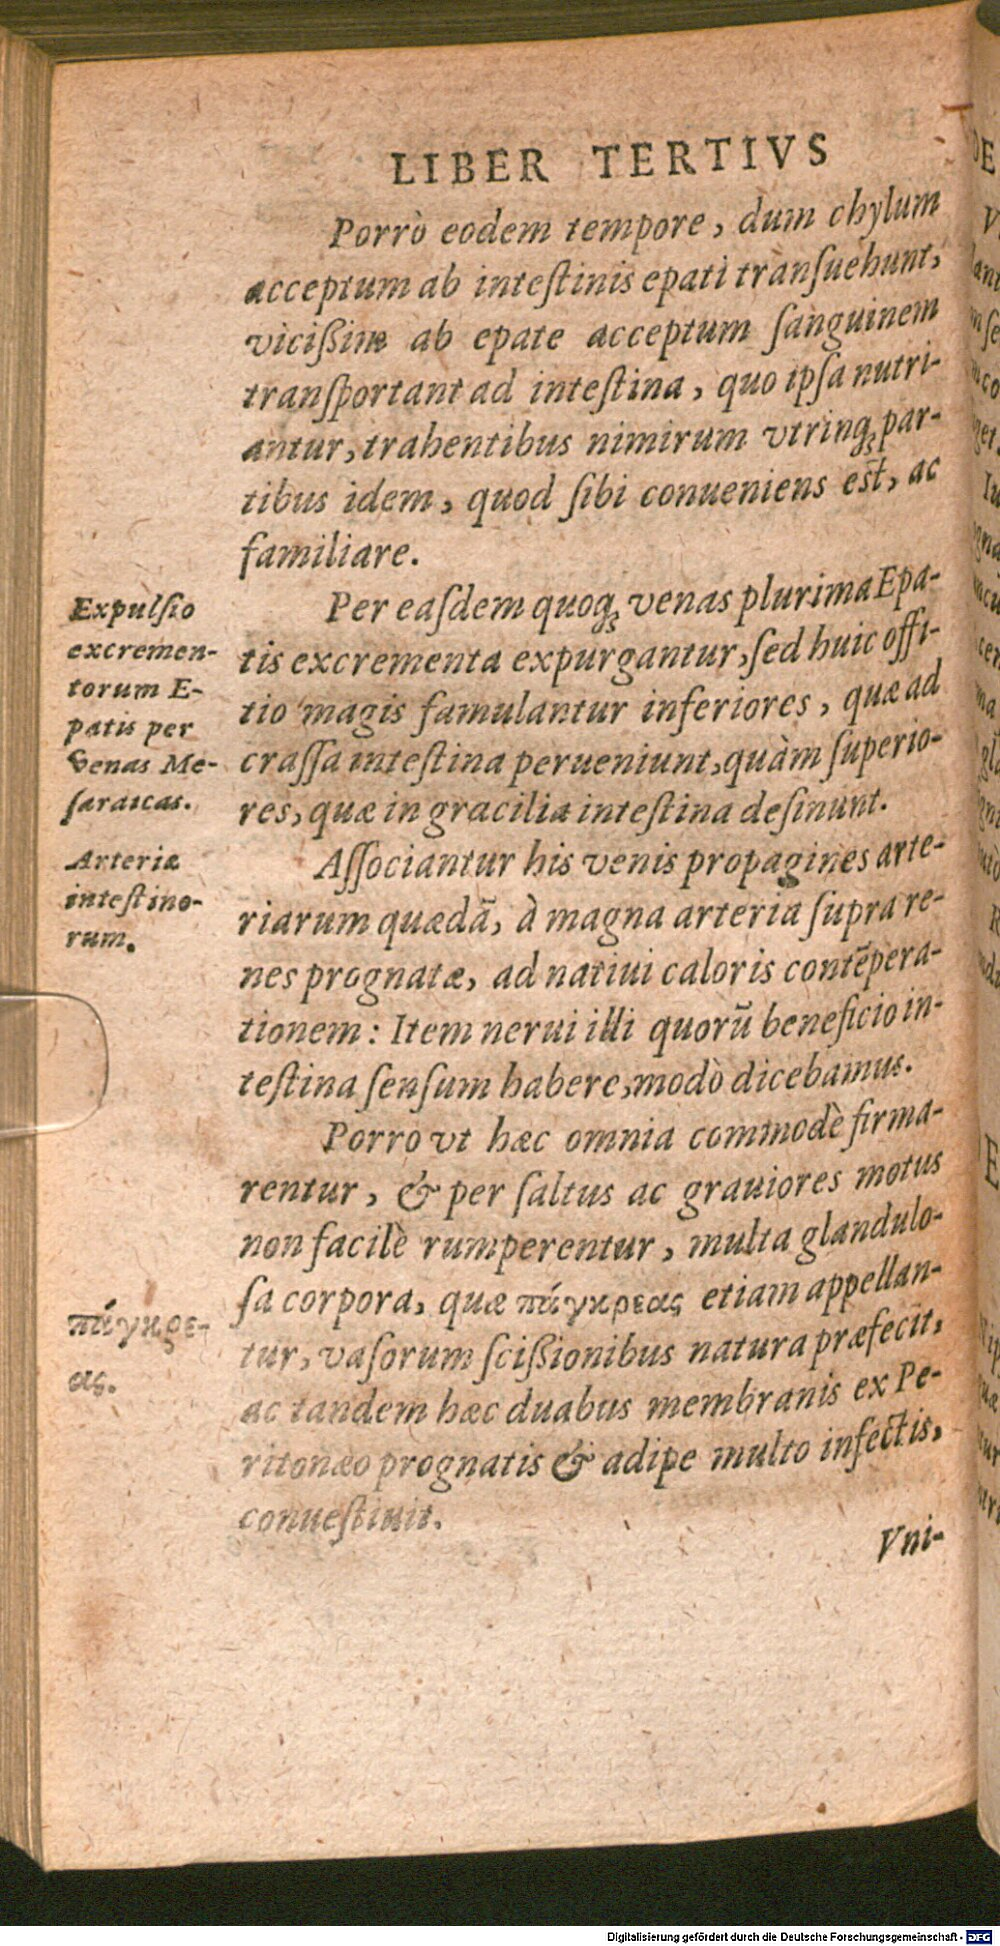 LIBER TERTIVS
Porrò eodem tempore, dum chylum
acceptum ab inteſtinis epati tranſuehunt,
viciſsim ab epate acceptum ſanguinem
tranſportant ad inteſtina, quo ipſa nutri-
antur, trahentibus nimirum vtrinqꝫ par-
tibus idem, quod ſibi conueniens est, ac
familiare.
Expulſio
excremen-
torum E-
patis per
venas Me-
ſaraicas.
Per eaſdem quoqꝫ venas plurima Epa-
tis excrementa expurgantur, ſed huic offi-
tio magis famulantur inferiores, quæ ad
craſſa inteſtina perueniunt, quàm ſuperio-
res, quæ in gracilia inteſtina deſinunt.
Arteriæ
inteſtino-
rum.
Aſſociantur his venis propagines arte-
riarum quædā, à magna arteria ſupra re-
nes prognatæ, ad natiui caloris contēpera-
tionem: Item nerui illi quorū beneficio in-
teſtina ſenſum habere, modò dicebamus.
Porro vt hæc omnia commodè firma-
rentur, & per ſaltus ac grauiores motus
non facilè rumperentur, multa glandulo-
ſa corpora, quæ πάγκρεας etiam appellan-
tur, vaſorum ſciſsionibus natura præfecit,
ac tandem hæc duabus membranis ex Pe-
ritonæo prognatis & adipe multo infectis,
conueſtiuit.
πάγκρε-
ας.
Vni-
Digitalisierung gefördert durch die Deutsche Forschungsgemeinschaft - DFG